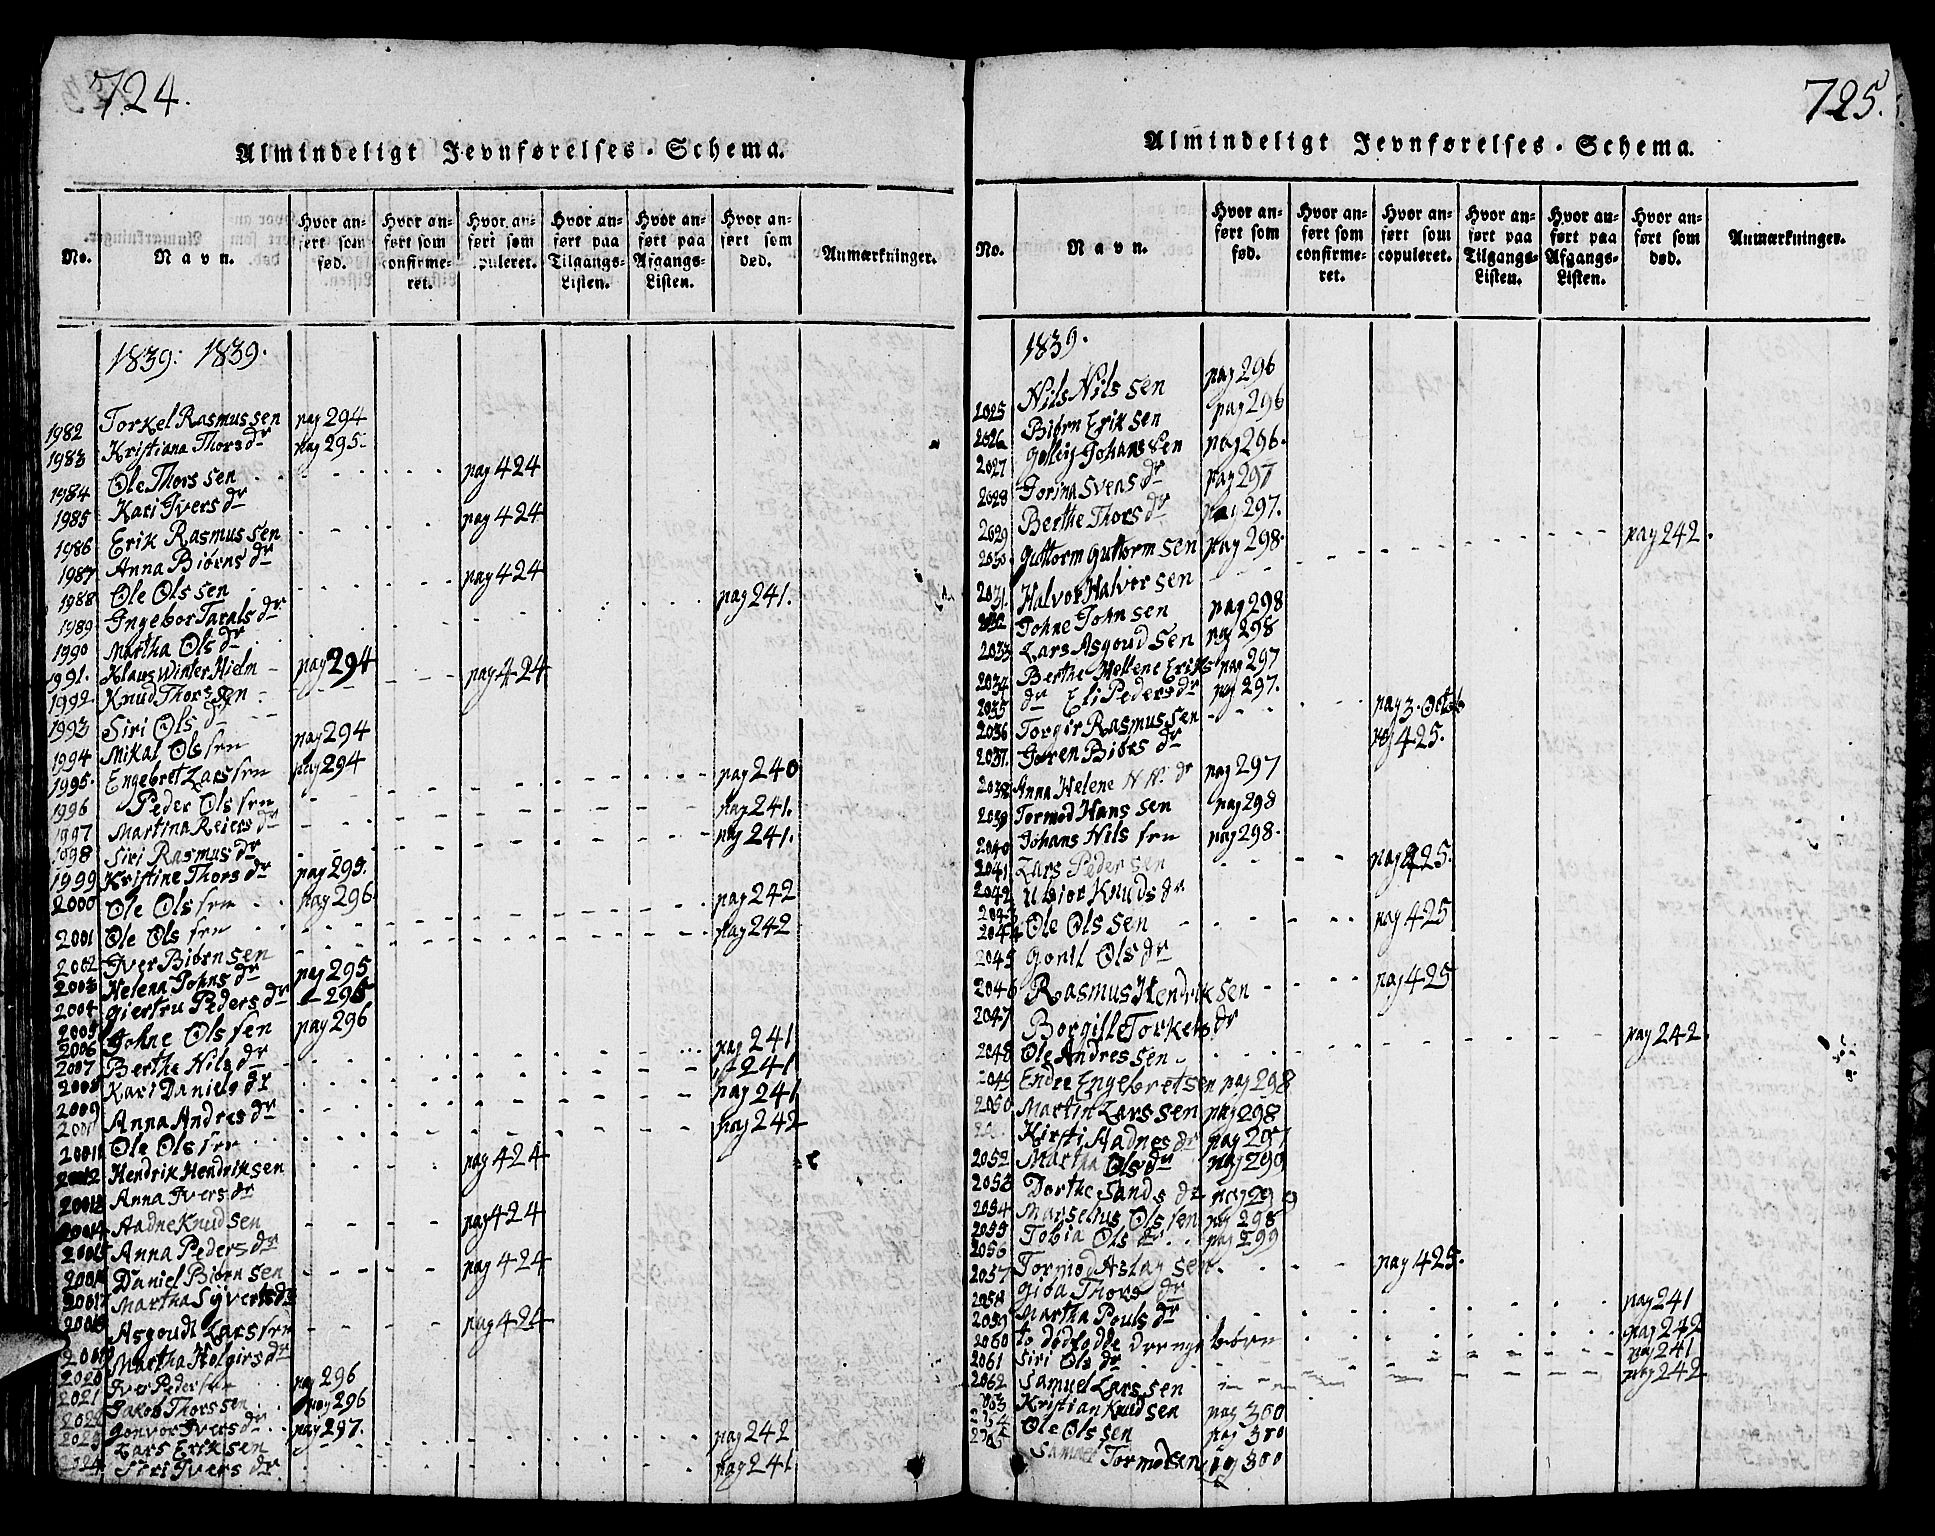 724.
Almindeligt Jevnførelses-Schema.
No.
Navn.
Hvor anført som fød.
Hvor anført som confirmeret.
Hvor anført som copuleret.
Hvor anført paa Tilgangs-Listen.
Hvor anført paa Afgangs-Listen.
Hvor anført som død.
Anmærkninger.
1839: 1839.
1982 Torkel Rasmussen pag 294
1983 Kristiana Thorsdr pag 295.
1984 Ole Thorssen pag 424
1985 Kari Iversdr
1986 Erik Rasmussen pag 424
1987 Anna Biørnsdr
1988 Ole Olssen pag 424
1989 Ingebor Taralsdr pag 241.
1990 Martha Olsdr
1991. Klaus Winter Hielm pag 294
1992. Knud Thorssen pag 424
1993 Siri Olsdr
1994 Mikal Olssen pag 294
1995. Engebret Larssen pag 294
1996 Peder Olssen pag 240
1997 Martina Reiersdr pag 241.
1998 Siri Rasmusdr pag 241.
1999 Kristine Thorsdr pag 295.
2000 Ole Olssen pag 296
2001 Ole Olssen pag 242
2002 Iver Biørnsen pag 242
2003 Helena Johnsdr pag 295
2004 Giertru Pedersdr 295
2005 Johne Olssen pag 296
2006 Berthe Nilsdr pag 241
2007 Kari Danielsdr 241
2008 Anna Andresdr pag 241
2009 Ole Olssen pag 242
Hendrik Hendriksen pag 424
Anna Iversdr
Aadne Knudsen pag 424
Anna Pedersdr
Daniel Biørnsen pag 424
Martha Syvertsdr
Asgoudt Larssen pag 424
Martha Holgirsdr
2020 Iver Pedersen pag 296
2021 Jakob Thorssen pag 296
Gonvor Iversdr pag 297.
Lars Eriksen pag 242
Siri Iversdr pag 241
725.
Almindeligt Jevnførelses-Schema.
No.
Navn.
Hvor anført som fød.
Hvor anført som confirmeret.
Hvor anført som copuleret.
Hvor anført paa Tilgangs-Listen.
Hvor anført paa Afgangs-Listen.
Hvor anført som død.
Anmærkninger.
1839.
2025 Nils Nilssen pag 296
2026 Biørn Eriksen pag 296
2027 Golleig Johanssen pag 296.
2028 Jorina Svensdr pag 297
2029 Berthe Thorsdr pag 297.
2030 Guttorm Guttormsen pag 298.
2031. Halvor Halvorsen pag 242.
Johne Johnsen pag 298
2033 Lars Asgoudsen pag 298
2034 Berthe Hellene Eriksdr pag 297
2035 Eli Pedersdr pag 297.
2036 Torger Rasmussen pag 3. Octob
2037. Joren Biørsdr pag 425.
2038 Anna Helene N.N. dr pag 297
2039 Tormod Hanssen pag 298
2040 Johans Nilssen pag 298.
2041 Lars Pedersen pag 425.
2042 Ubior Knudsdr
2043
2044 Ole Olssen pag 425
2045 Gonil Olsdr
2046 Rasmus Hendriksen pag 425
2047 Borgille Torkelsdr
2048 Ole Andressen pag 242.
2049 Endre Engebretsen pag 298
2050 Martin Larssen pag 298
Kirsti Aadnesdr pag 297
2052 Martha Olsdr pag 299
2053 Dorthe Sandsdr pag 299
2054 Marselius Olssen pag 298
2055 Tobia Olsdr pag 299
2056
2057 Tormod Aslagsen pag 425.
2058 Gida Thorsdr
2059 Martha Poulsdr pag 241
2060 to dødfødde drenge børn pag 242
2061 Siri Olsdr pag 241
2062 Samuel Larssen pag 242
Kristian Knudsen pag 300
Ole Olssen pag 300
Samuel Tormodsen pag 300